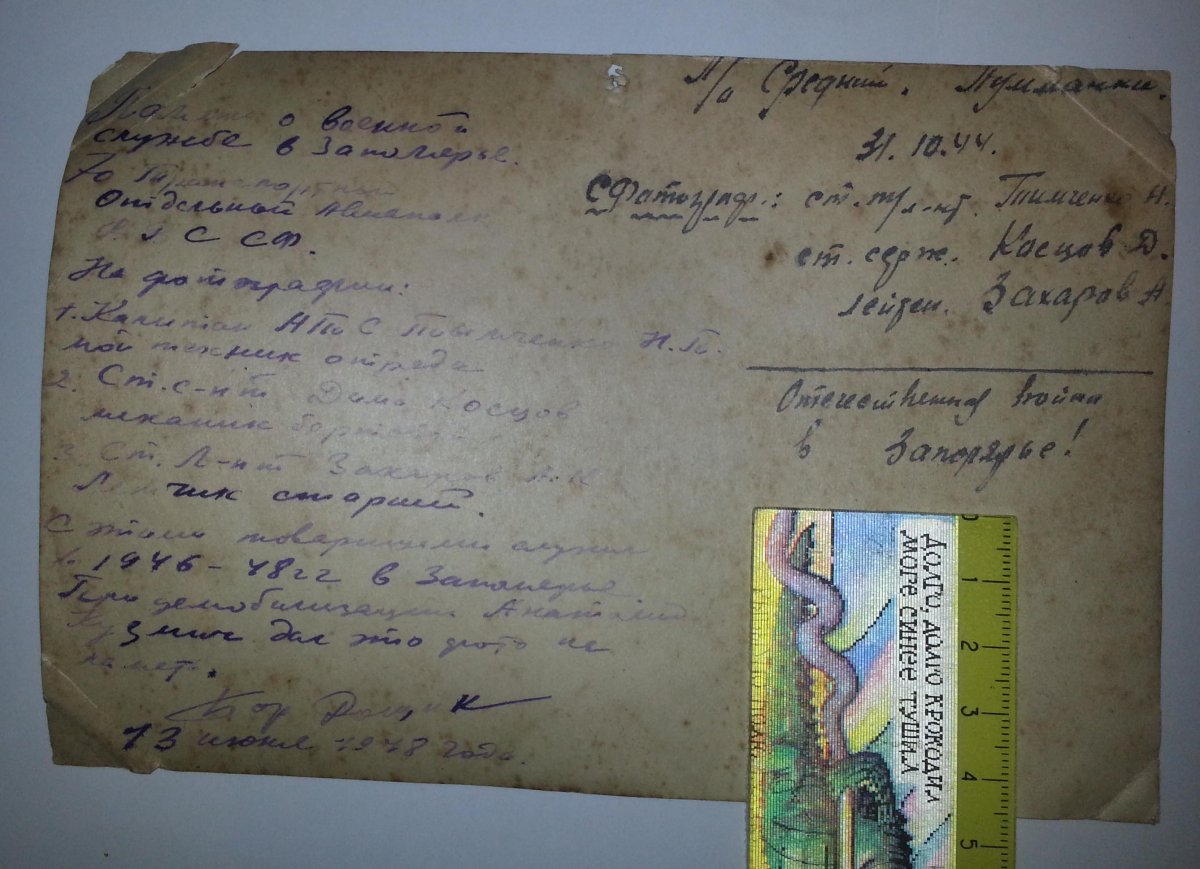 Память о военной
службе в Заполярье.
70 Транспортный
Отдельный Авиаполк
ВВС СФ.
На фотографии:
1. Капитан НТС Тимченко Н.
мой техник отряда
2. Ст. с-нт Дима Косцов
механик бортовой
3. Ст. Л-нт Захаров
Летчик старший.
С этими товарищами служил
в 1946-48 гг в Заполярье
При демобилизации Анатолий
Кузмич дал это фото на
память.
13 июня 1948 года.
П/о Средний. Пумманки.
31.10.44.
СФотограф.: ст. т/л-нт. Тимченко Н.
ст. серж. Косцов Д.
лейтен. Захаров А
Отечественная война
в Запорярье!
Долго, долго крокодил
море синее тушил
0
1
2
3
4
5